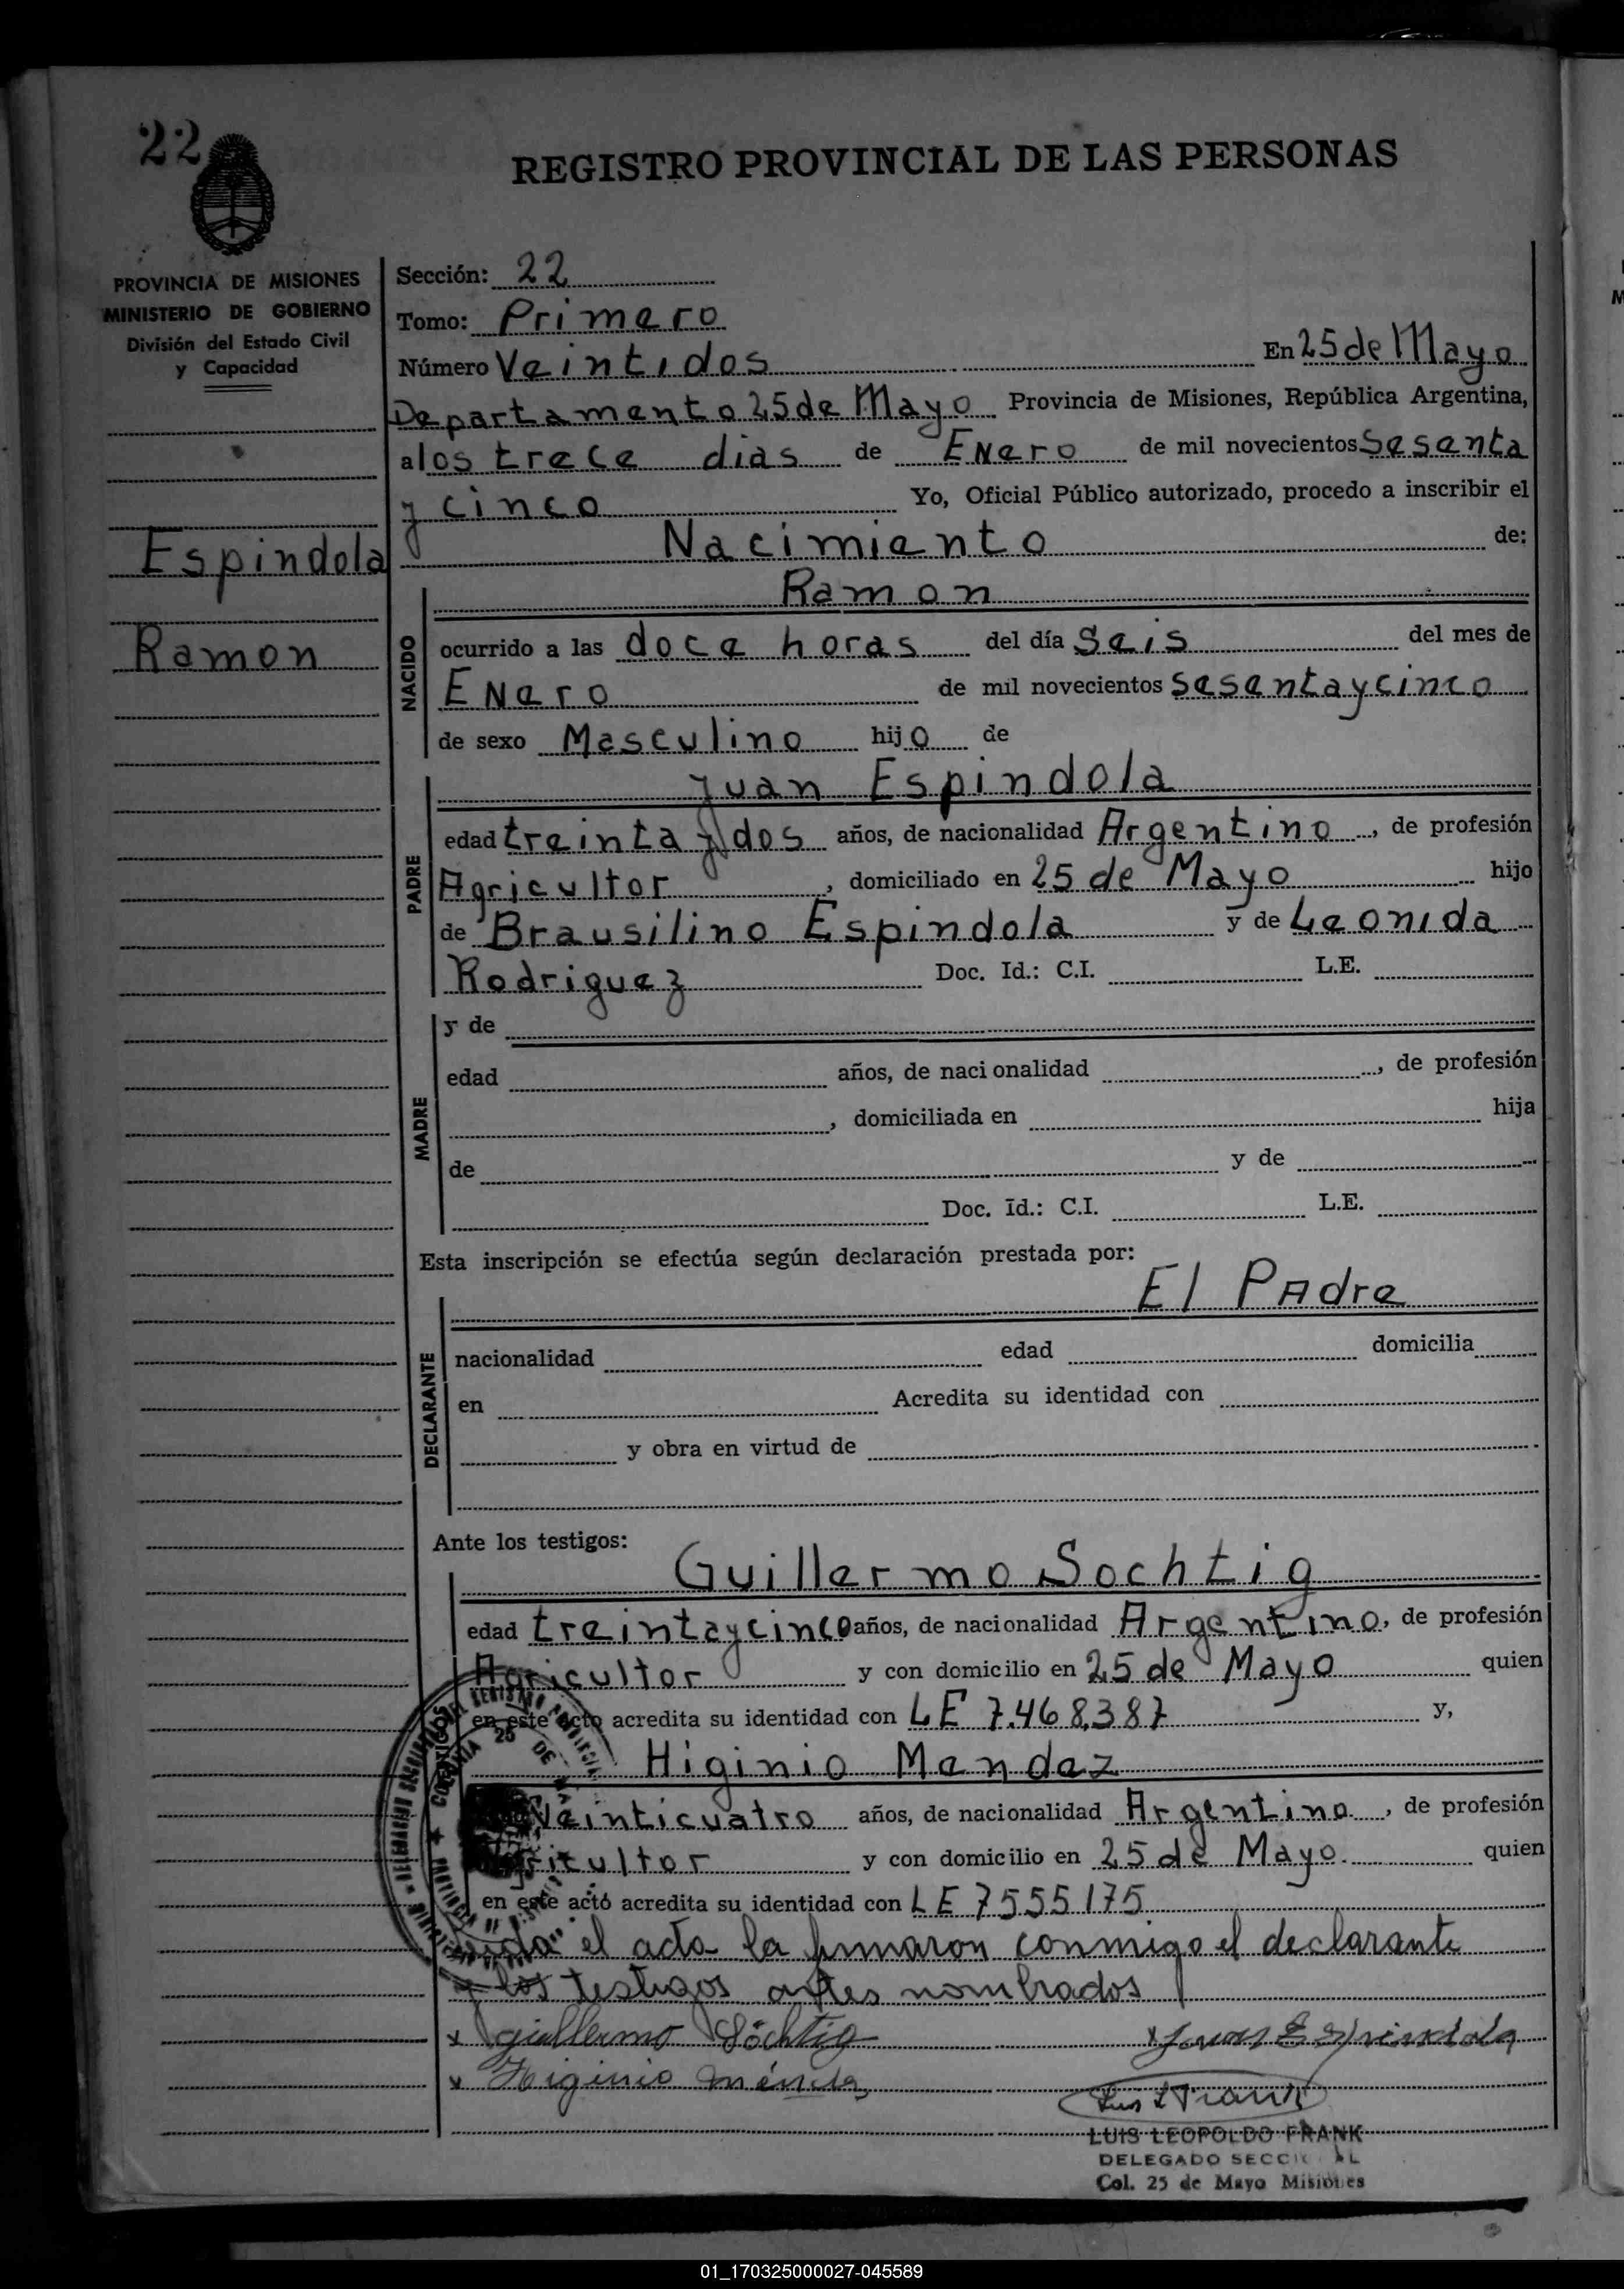 22
REGISTRO PROVINCIAL DE LAS PERSONAS
PROVINCIA DE MISIONES
MINISTERIO DE GOBIERNO
División del Estado Civil
y Capacidad
Espindola
Ramon
Sección: 22
Tomo: Primero
Número Veintidos En 25 de Mayo
Departamento 25 de Mayo Provincia de Misiones, República Argentina,
a los trece dias de Enero de mil novecientos Sesenta
y cinco Yo, Oficial Público autorizado, procedo a inscribir el
Nacimiento de:
NACIDO
Ramon
ocurrido a las doce horas del día Seis del mes de
Enero de mil novecientos sesentaycinco
de sexo Masculino hijo de
PADRE
Juan Espindola
edad treinta y dos años, de nacionalidad Argentino, de profesión
Agricultor, domiciliado en 25 de Mayo hijo
de Brausilino Espindola y de Leonida
Rodriguez Doc. Id.: C.I. L.E.
MADRE
y de
edad años, de nacionalidad , de profesión
, domiciliada en hija
de y de
Doc. Id.: C.I. L.E.
Esta inscripción se efectúa según declaración prestada por:
El Padre
DECLARANTE
nacionalidad edad domicilia
en Acredita su identidad con
y obra en virtud de
Ante los testigos:
Guillermo Sochtig
edad treintaycinco años, de nacionalidad Argentino, de profesión
Agricultor y con domicilio en 25 de Mayo quien
en este acto acredita su identidad con LE 7.468.387 y,
Higinio Mendez
Veinticuatro años, de nacionalidad Argentino, de profesión
y con domicilio en 25 de Mayo. quien
en este acto acredita su identidad con LE 7555175
el acta la firmaron conmigo el declarante
y los testigos antes nombrados
x Guillermo Söchtig x Juan Espindola
x Higinio Méndez
LUIS LEOPOLDO FRANK
DELEGADO
Col. 25 de Mayo Misiones
01_170325000027-045589